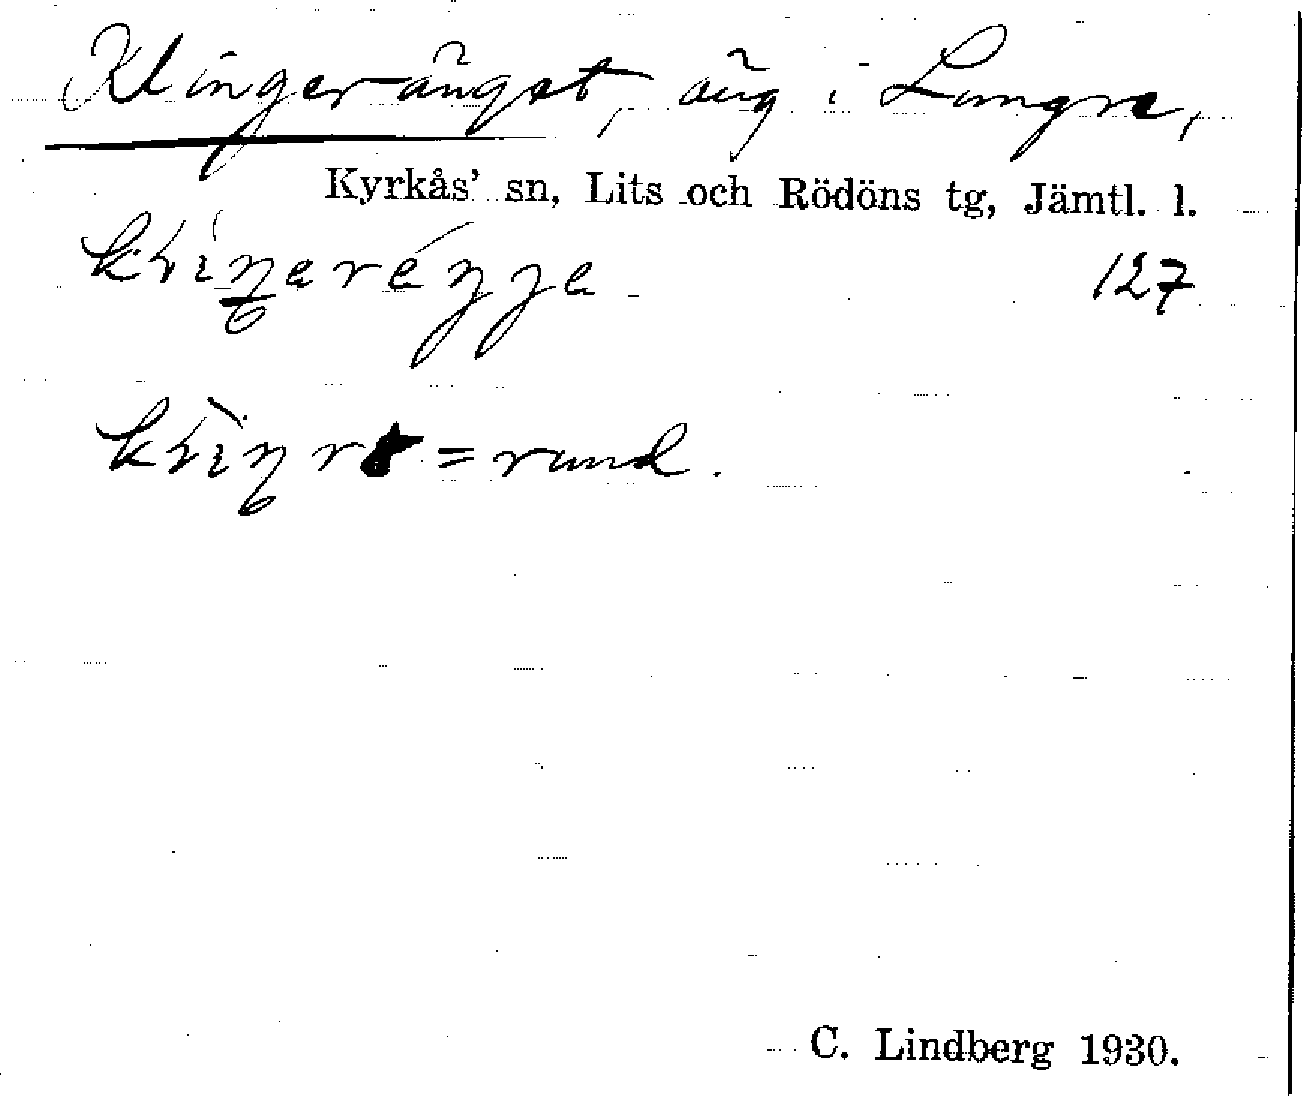 Klingeränget, äng i Lungre,
Kyrkås' sn, Lits och Rödöns tg, Jämtl. l.
127
= rund.
C. Lindberg 1930.